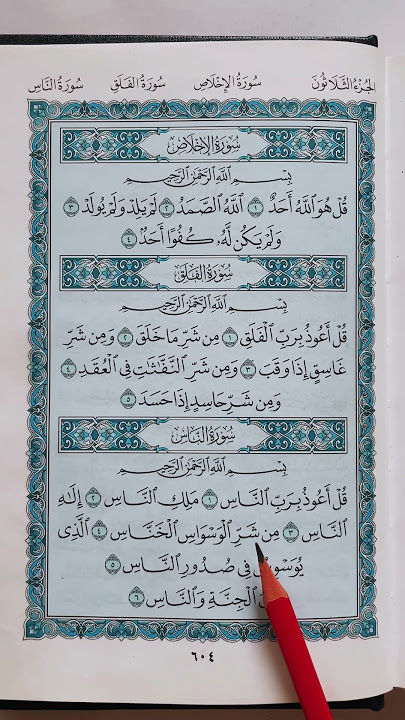 الجزء الثلاثون سورة الإخلاص سورة الفلق سورة الناس
سورة الإخلاص
بِسْمِ ٱللَّهِ ٱلرَّحْمَٰنِ ٱلرَّحِيمِ
قُلْ هُوَ ٱللَّهُ أَحَدٌ ١ ٱللَّهُ ٱلصَّمَدُ ٢ لَمْ يَلِدْ وَلَمْ يُولَدْ ٣
وَلَمْ يَكُن لَّهُۥ كُفُوًا أَحَدٌۢ ٤
سورة الفلق
بِسْمِ ٱللَّهِ ٱلرَّحْمَٰنِ ٱلرَّحِيمِ
قُلْ أَعُوذُ بِرَبِّ ٱلْفَلَقِ ١ مِن شَرِّ مَا خَلَقَ ٢ وَمِن شَرِّ
غَاسِقٍ إِذَا وَقَبَ ٣ وَمِن شَرِّ ٱلنَّفَّٰثَٰتِ فِى ٱلْعُقَدِ ٤
وَمِن شَرِّ حَاسِدٍ إِذَا حَسَدَ ٥
سورة الناس
بِسْمِ ٱللَّهِ ٱلرَّحْمَٰنِ ٱلرَّحِيمِ
قُلْ أَعُوذُ بِرَبِّ ٱلنَّاسِ ١ مَلِكِ ٱلنَّاسِ ٢ إِلَٰهِ
ٱلنَّاسِ ٣ مِن شَرِّ ٱلْوَسْوَاسِ ٱلْخَنَّاسِ ٤ ٱلَّذِى
يُوَسْوِسُ فِى صُدُورِ ٱلنَّاسِ ٥
ٱلْجِنَّةِ وَٱلنَّاسِ ٦
٦٠٤